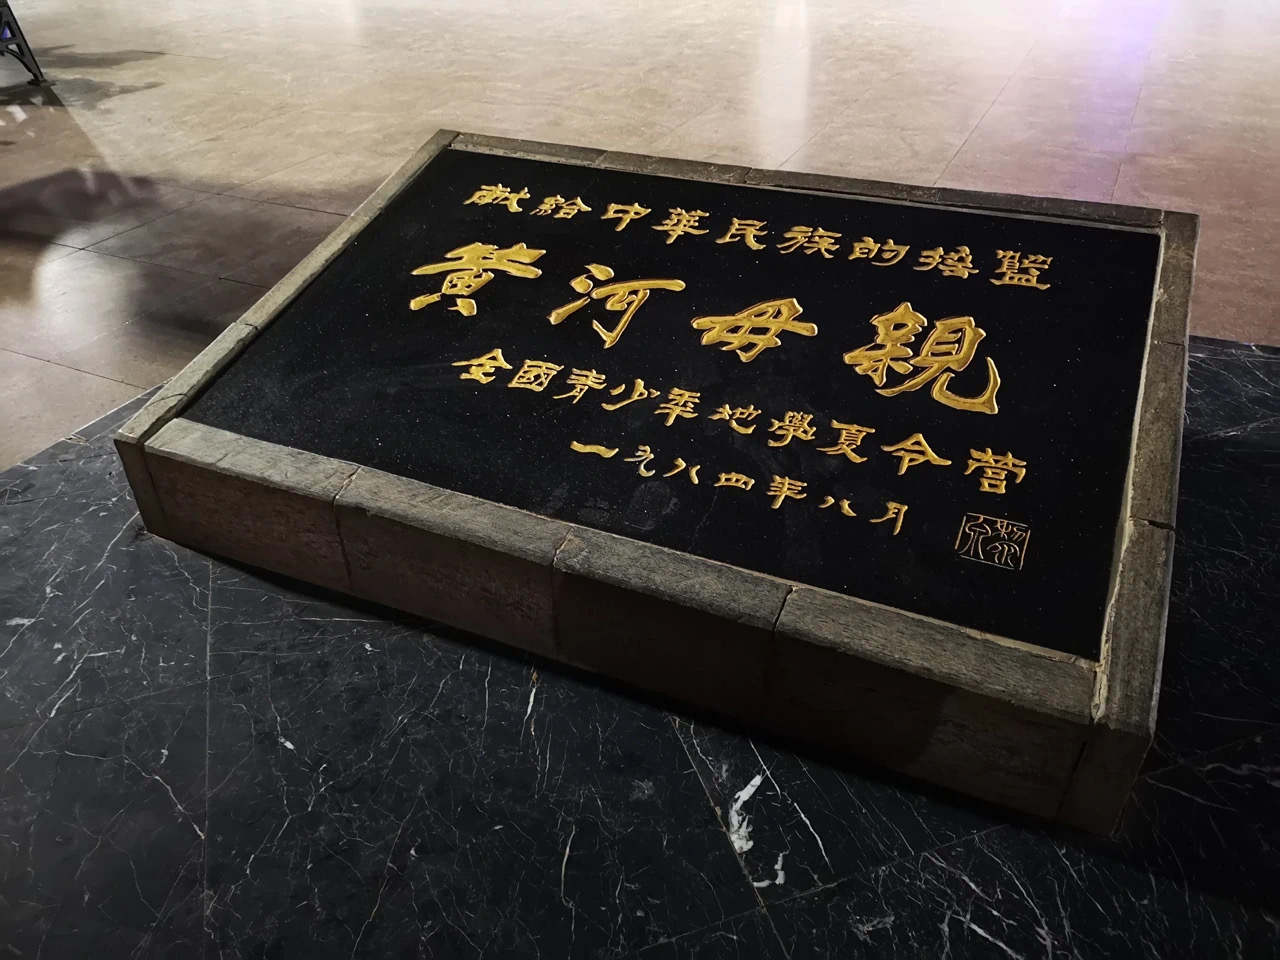 献给中華民族的摇籃
黄河母親
全國青少年地學夏令营
一九八四年八月